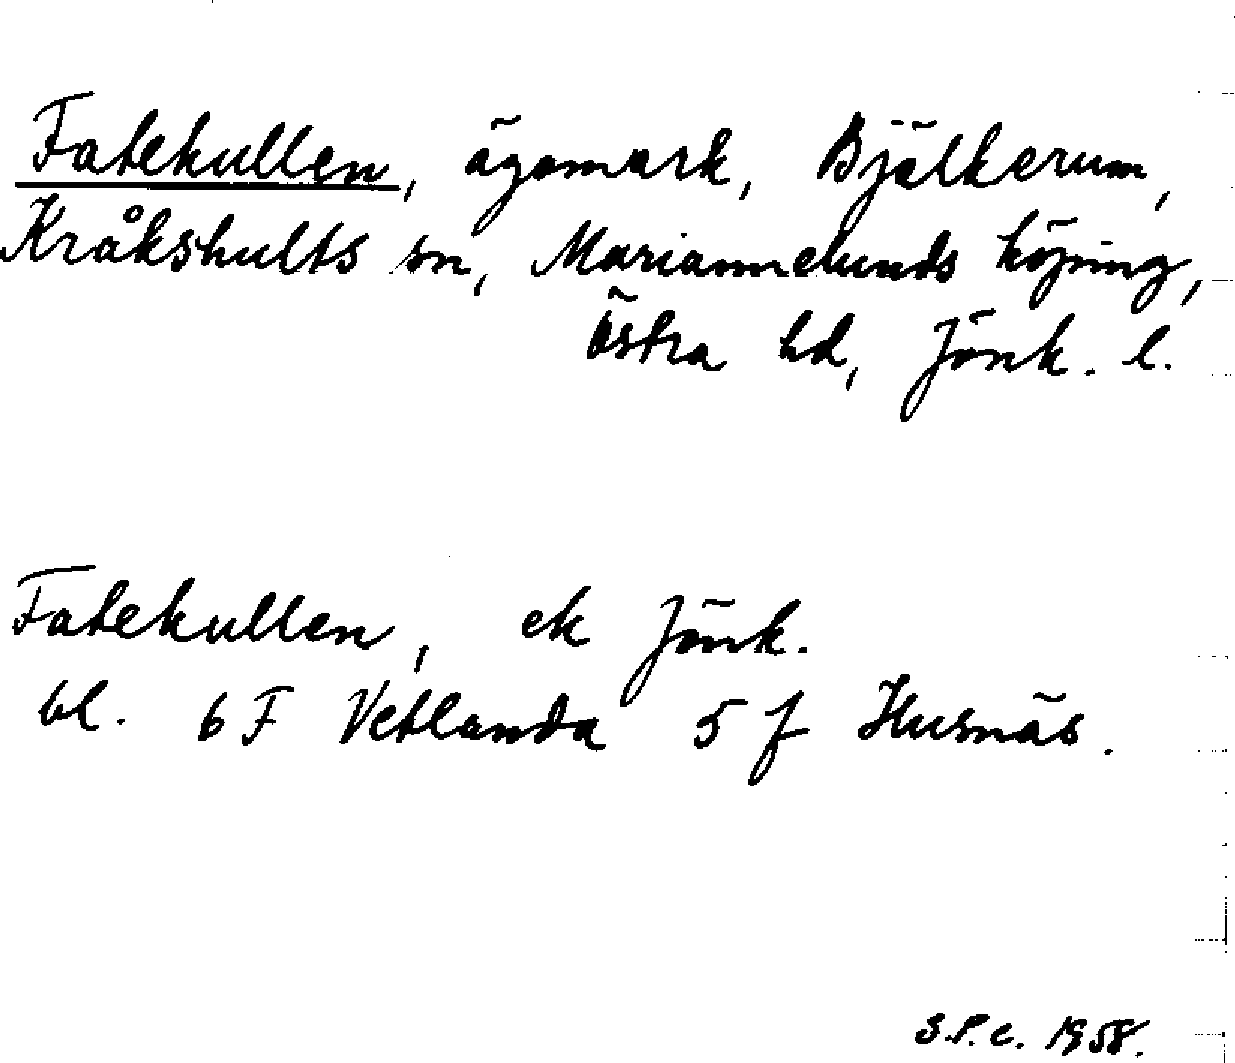 Fatekullen, ägomark, Bjälkerum,
Kråkshults sn, Mariannelunds köping,
Östra hd, Jönk. l.
Fatekullen, ek Jönk.
bl. 6 F Vetlanda 5 f Husnäs.
S.P.C. 1958.